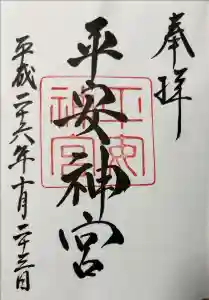 奉拝
平安神宮
平成二十六年十月二十三日
平安神宮